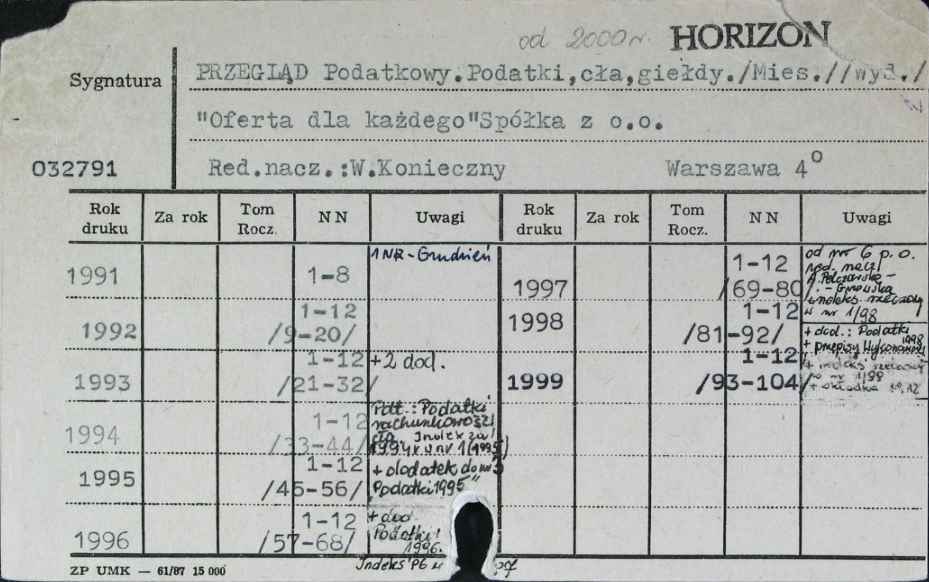 od 2000 r. HORIZON
Sygnatura PRZEGLĄD Podatkowy.Podatki,cła,giełdy./Mies.//wyd./
"Oferta dla każdego"Spółka z o.o.
032791 Red.nacz.:W.Konieczny Warszawa 4°
Rok druku Za rok Tom Rocz. N N Uwagi Rok druku Za rok Tom Rocz. N N Uwagi
1991 1-8 1 NR - Grudzień
1992 1-12 /9-20/
1993 1-12 /21-32/ +2 dod.
1994 1-12 /33-44/ Podt.: Podatki rachunkowość
Indeks za 1994 r. w nr 1 (1995)
1995 1-12 /45-56/ + dodatek do nr 5
"Podatki 1995"
1996 1-12 /57-68/ + dod. Podatki 1996.
Indeks '96 w
1997 1-12 /69-80/ od nr 6 p.o.
red. nacz.
+ indeks rzeczowy
w nr 1/98
1998 1-12 /81-92/ + dod.: Podatki 1998
+ przepisy
1999 1-12 /93-104/ + indeks rzeczowy
nr 1/99
+ okładka
ZP UMK — 61/87 15 000